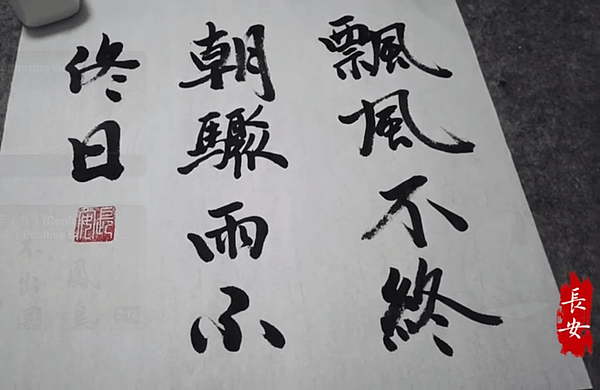 飄風不終
朝驟雨不
終日
長安